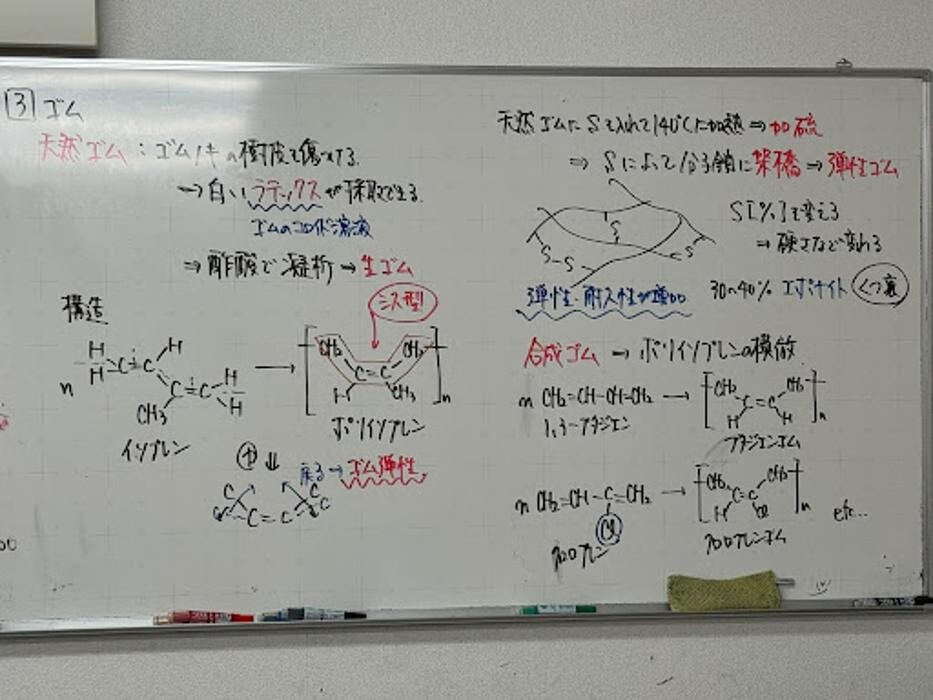 3 ゴム
天然ゴム：ゴムノキの樹皮を傷つける.
→ 白いラテックスが採取できる.
ゴムのコロイド溶液
⇒ 酢酸で凝析 → 生ゴム
構造
シス型
n H H C = C H C = C H H CH3
イソプレン
→ [ CH2 CH2 C = C H CH3 ]n
ポリイソプレン
+ ⇓ 戻る → ゴム弾性
C C C = C C C
天然ゴムにSを入れて140℃に加熱 ⇒ 加硫
⇒ Sによって分子鎖に架橋 → 弾性ゴム
S
S-S-
-S-
S[%]を変える
⇒ 硬さなど変わる
弾性・耐久性が増加
30~40% エボナイト くつ裏
合成ゴム → ポリイソプレンの模倣
n CH2=CH-CH=CH2 → [ CH2 CH2 C=C H H ]n
1,3-ブタジエン
ブタジエンゴム
n CH2=CH-C=CH2 → [ CH2 CH2 C=C H Cl ]n
Cl
etc...
クロロプレン
クロロプレンゴム